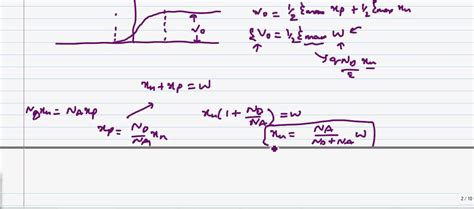 V₀ = ½ ξmax xp + ½ ξmax xn
V₀
ξ V₀ = ½ ξmax W
q ND/2 xn
xn + xp = W
ND xn = NA xp
xp = ND/NA xn
xn(1 + ND/NA) = W
xn = NA/(ND + NA) W
2 / 10